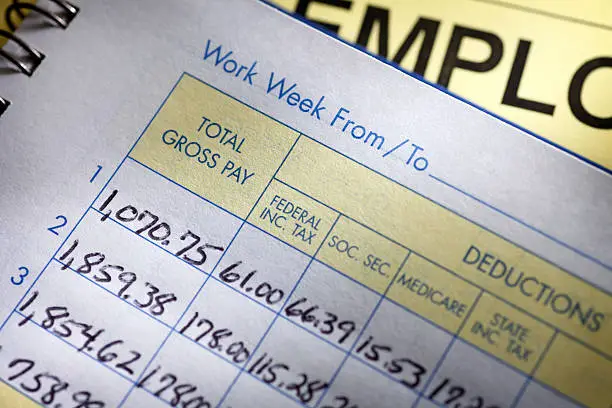 EMPLO
Work Week From / To
TOTAL GROSS PAY
DEDUCTIONS
FEDERAL INC. TAX
SOC. SEC.
MEDICARE
STATE INC. TAX
1 1,070.75 61.00 66.39 15.53
2 1,859.38 178.00 115.28
3 1,854.62 178.00
758.98